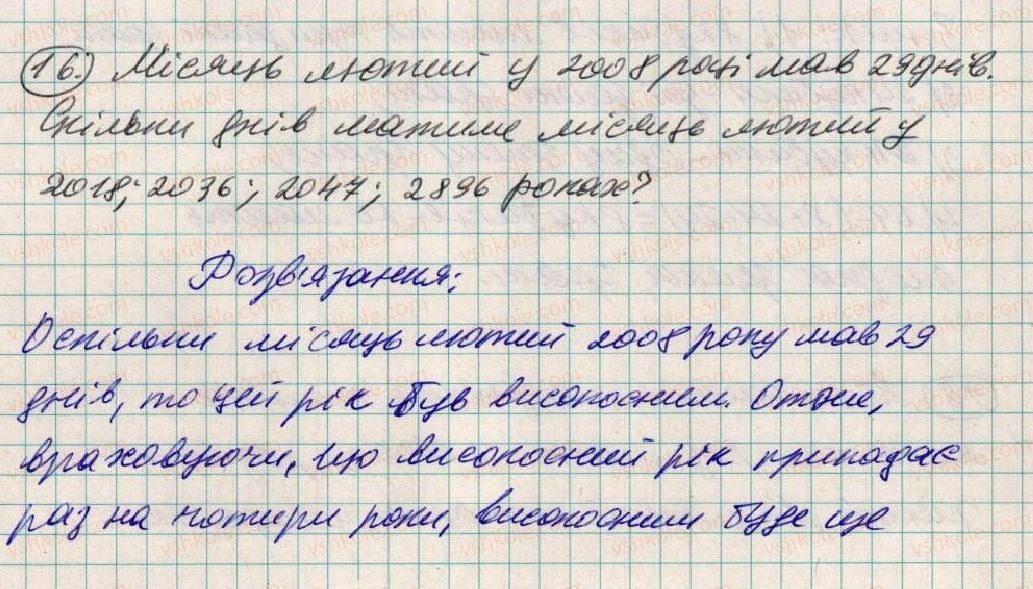 16.) Місяць лютий у 2008 році мав 29 днів.
Скільки днів матиме місяць лютий у
2018; 2036; 2047; 2896 роках?
Розв'язання:
Оскільки місяць лютий 2008 року мав 29
днів, то цей рік був високосним. Отже,
враховуючи, що високосний рік припадає
раз на чотири роки, високосним буде ще